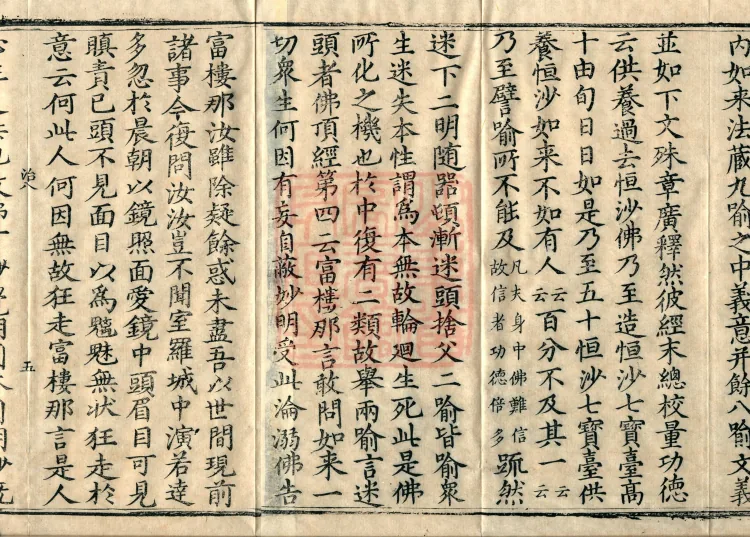 内如来法蔵九喻之中義意并餘八喻文義
並如下文殊章廣釋然彼経末總校量功德
云供養過去恒沙佛乃至造恒沙七寶臺高
十由旬日日如是乃至五十恒沙七寶臺供
養恒沙如来不如有人云云百分不及其一云云
乃至譬喻所不能及凡夫身中佛難信故信者功德倍多䟽然
迷下二明随器頓漸迷頭捨父二喻皆喻衆
生迷失本性謂為本無故輪迴生死此是佛
所化之機也於中復有二類故舉兩喻言迷
頭者佛頂經第四云富樓那言敢問如来一
切衆生何因有妄自蔽妙明受此淪溺佛告
富樓那汝雖除疑餘惑未盡吾以世間現前
諸事今復問汝汝豈不聞室羅城中演若達
多忽於晨朝以鏡照面愛鏡中頭眉目可見
瞋責己頭不見面目以為魑魅無狀狂走於
意云何此人何因無故狂走富樓那言是人
治八 五